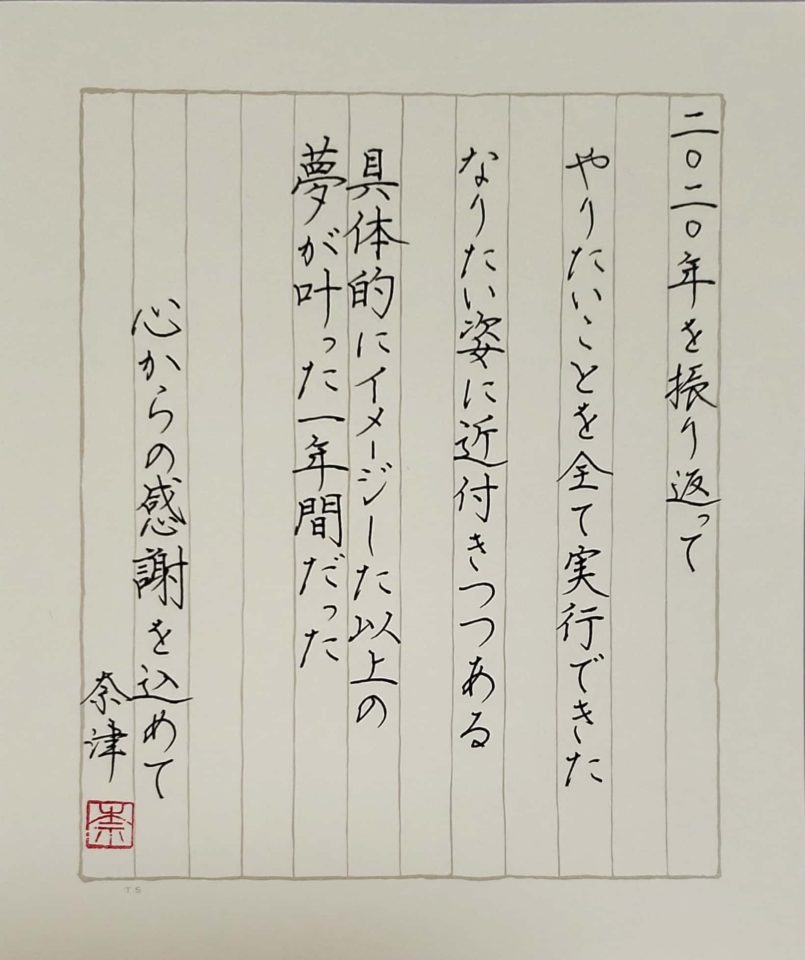 二〇二〇年を振り返って
やりたいことを全て実行できた
なりたい姿に近付きつつある
具体的にイメージした以上の
夢が叶った一年間だった
心からの感謝を込めて
奈津
奈
T.S